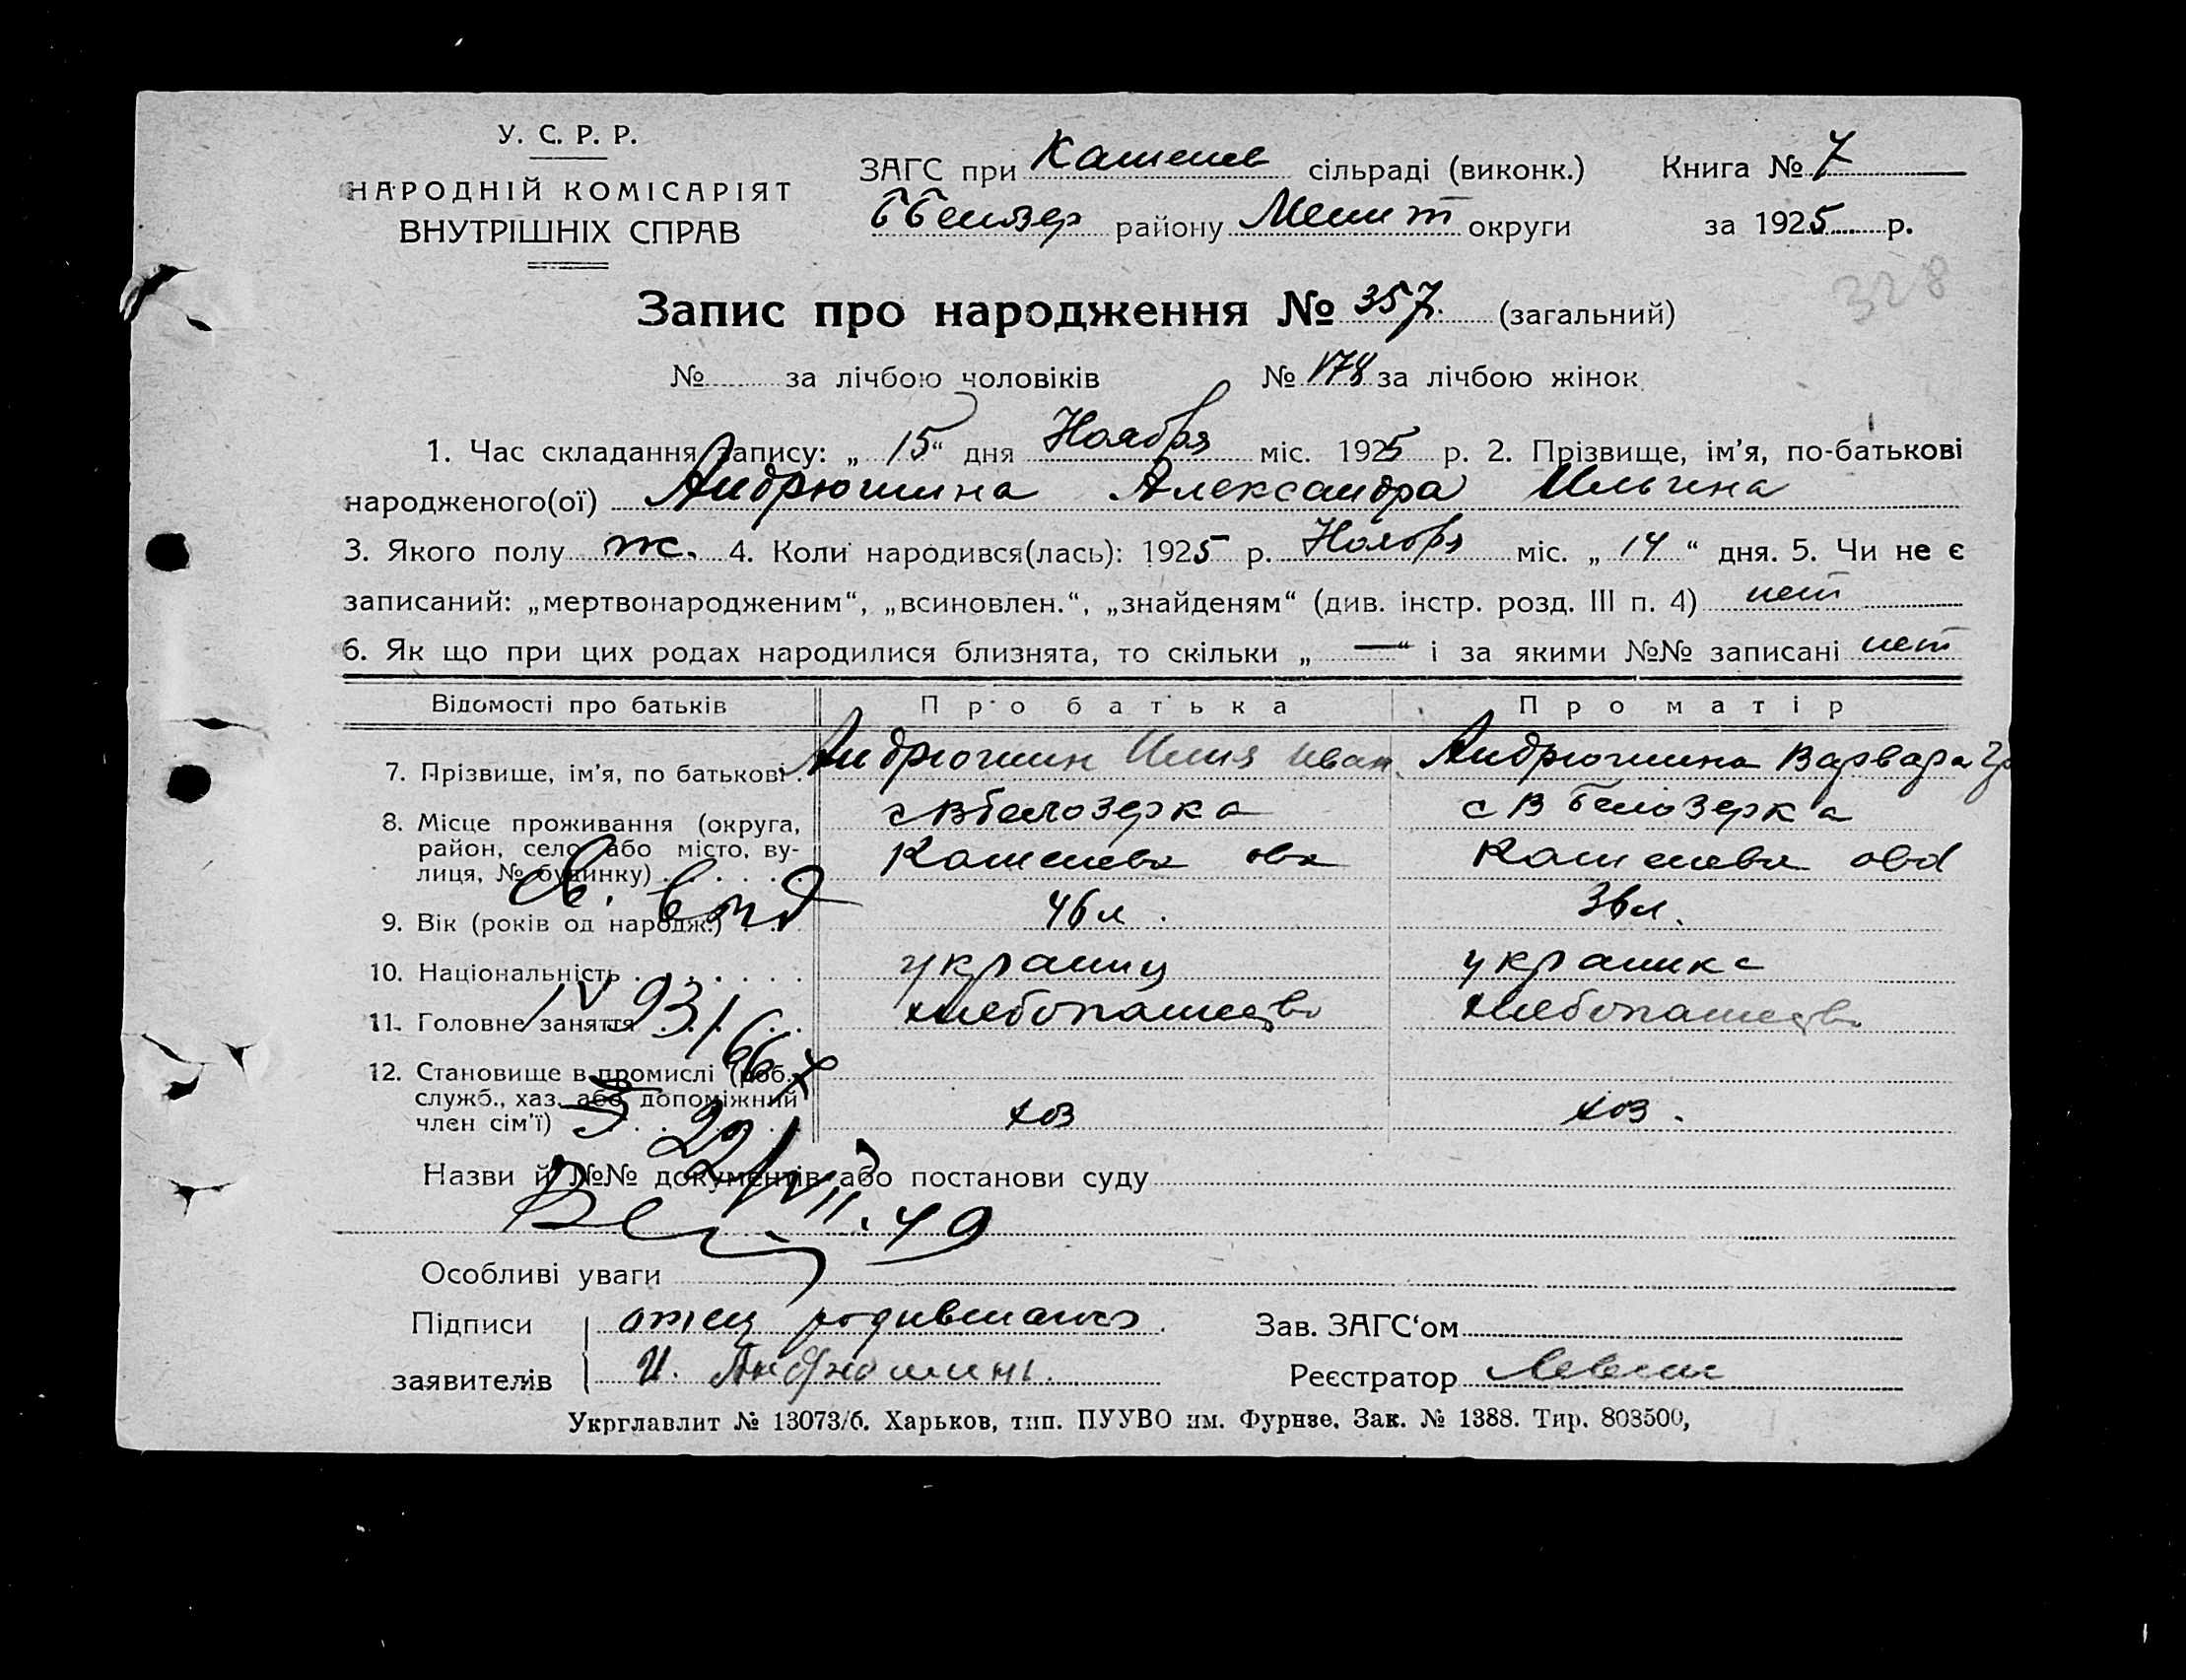 У. С. Р. Р.
НАРОДНІЙ КОМІСАРІЯТ
ВНУТРІШНІХ СПРАВ
ЗАГС при сільраді (виконк.) Книга № 7
району Мелит округи за 1925 р.
328
Запис про народження № 357. (загальний)
№ за лічбою чоловіків № 178 за лічбою жінок
1. Час складання запису: „ 15 “ дня Ноября міс. 1925 р. 2. Прізвище, ім'я, по-батькові
народженого(ої) Андрюшина Александра Ильина
3. Якого полу ж. 4. Коли народився(лась): 1925 р. Ноября міс. „ 14 “ дня. 5. Чи не є
записаний: „мертвонародженим“, „всиновлен.“, „знайденям“ (див. інстр. розд. III п. 4) нет
6. Як що при цих родах народилися близнята, то скільки „ — “ і за якими №№ записані нет
Відомості про батьків Про батька Про матір
7. Прізвище, ім'я, по батькові Андрюшин Илия Иван. Андрюшина Варвара Гр
8. Місце проживання (округа, с В белозерка с В белозерка
район, село або місто, ву-
лиця, № будинку)
9. Вік (років од народж.) 46 л. 36 л.
10. Національність украинц украинка
11. Головне заняття хлебопашество хлебопашество
12. Становище в промислі (роб.,
служб., хаз. або допоміжний
член сім'ї) хоз хоз.
Назви й №№ документів або постанови суду
22/VII.49
Особливі уваги
Підписи отец родившагося Зав. ЗАГС'ом
заявителів И. Андрюшинъ. Реєстратор
Укрглавлит № 13073/б. Харьков, тип. ПУУВО им. Фурнзе. Зак. № 1388. Тир. 803500,